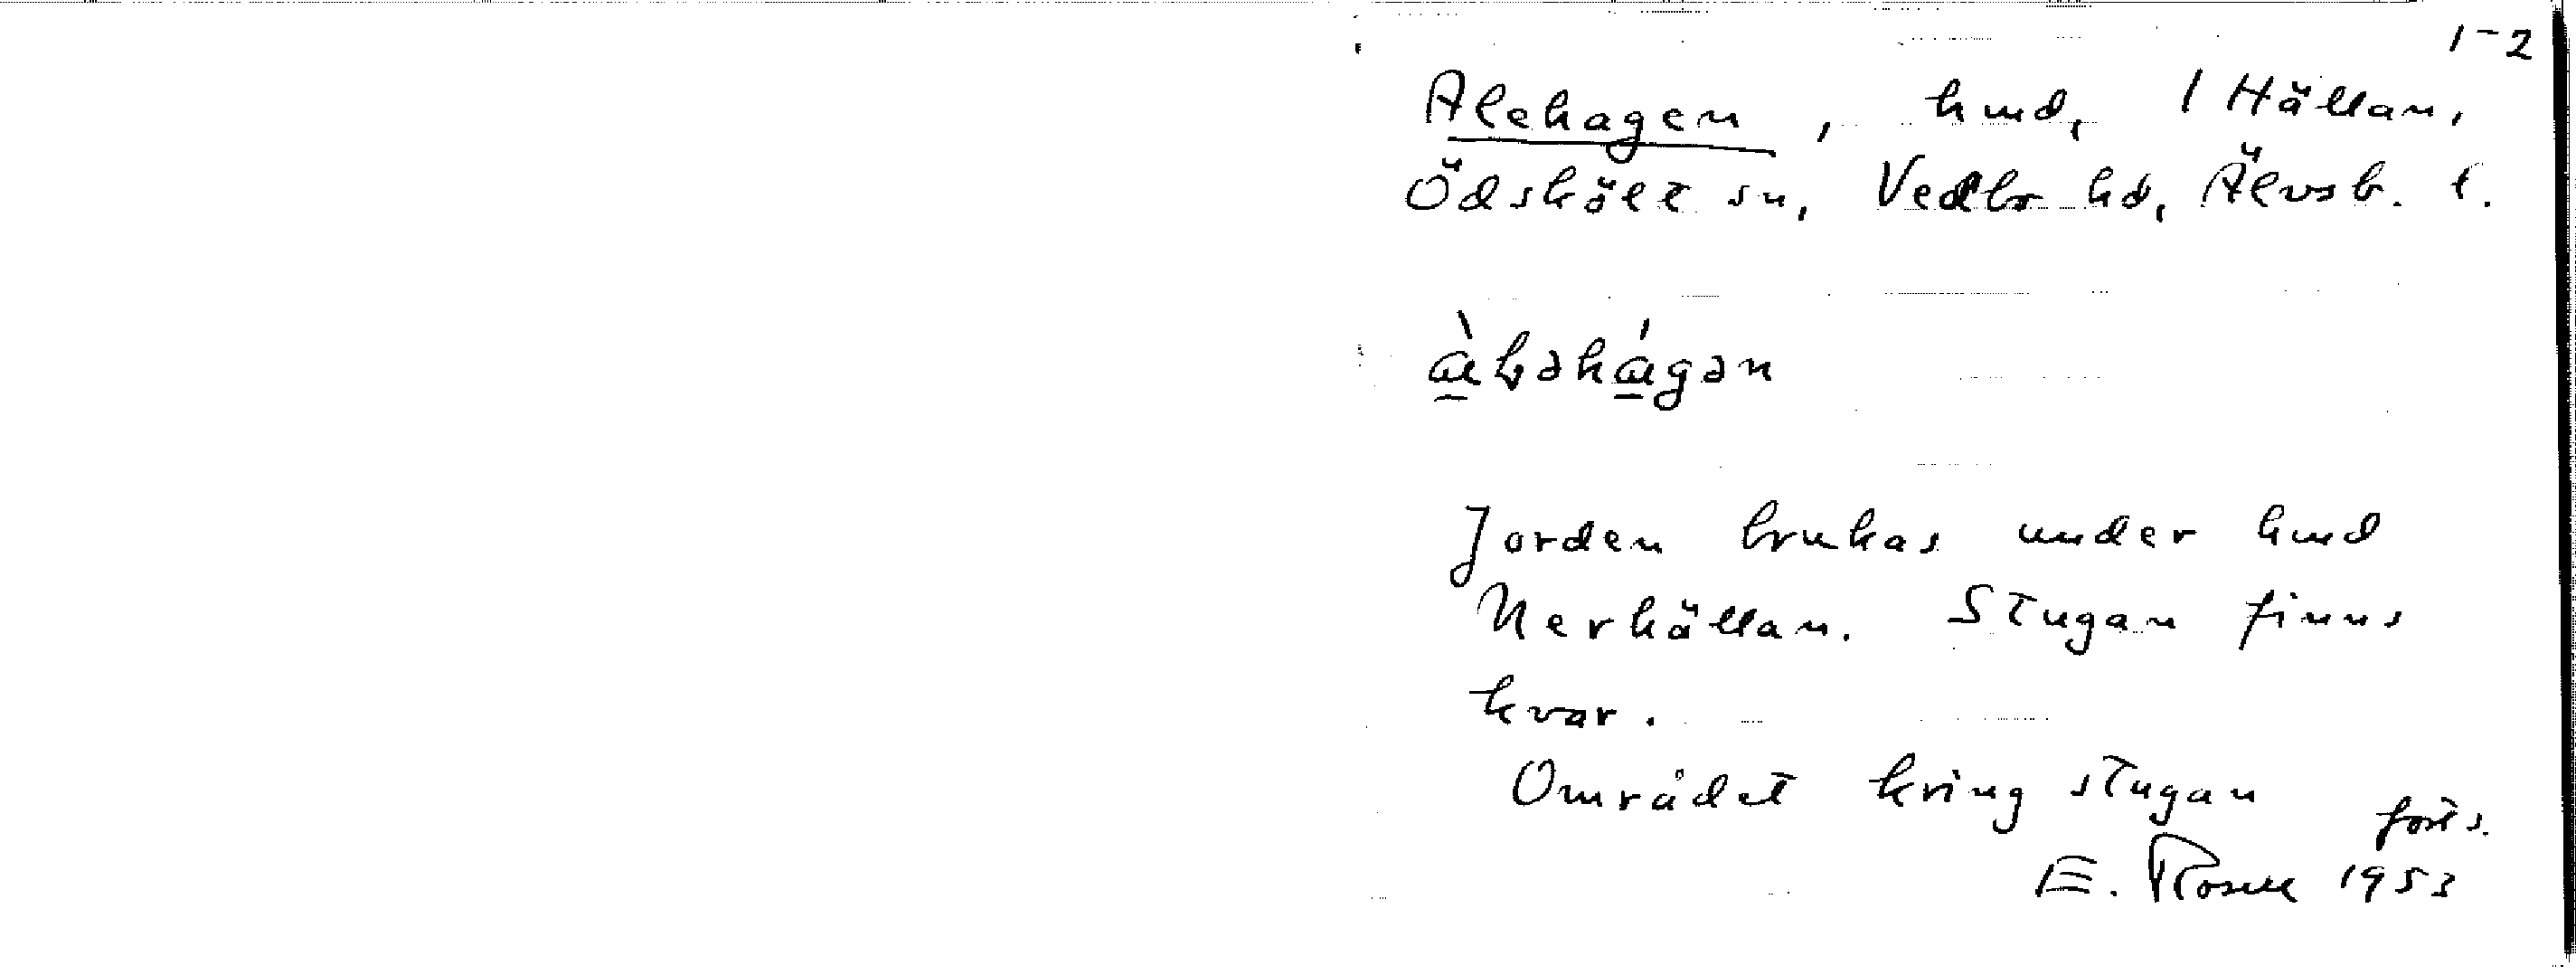 1-2
Alehagen, hmd, 1 Hällan,
Ödskölt sn, Vedbo hd, Älvsb. l.
Jorden brukas under hmd
Nerhällan. Stugan finns
kvar.
Området kring stugan
forts.
E. Rosell 1953